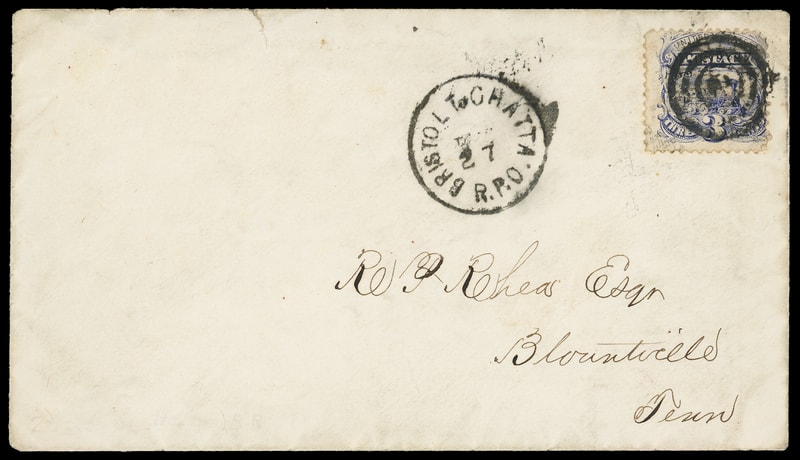 BRISTOL To CHATTA.
27
R.P.O.
POSTAGE
3
R P Rhea Esqr
Blountville
Tenn